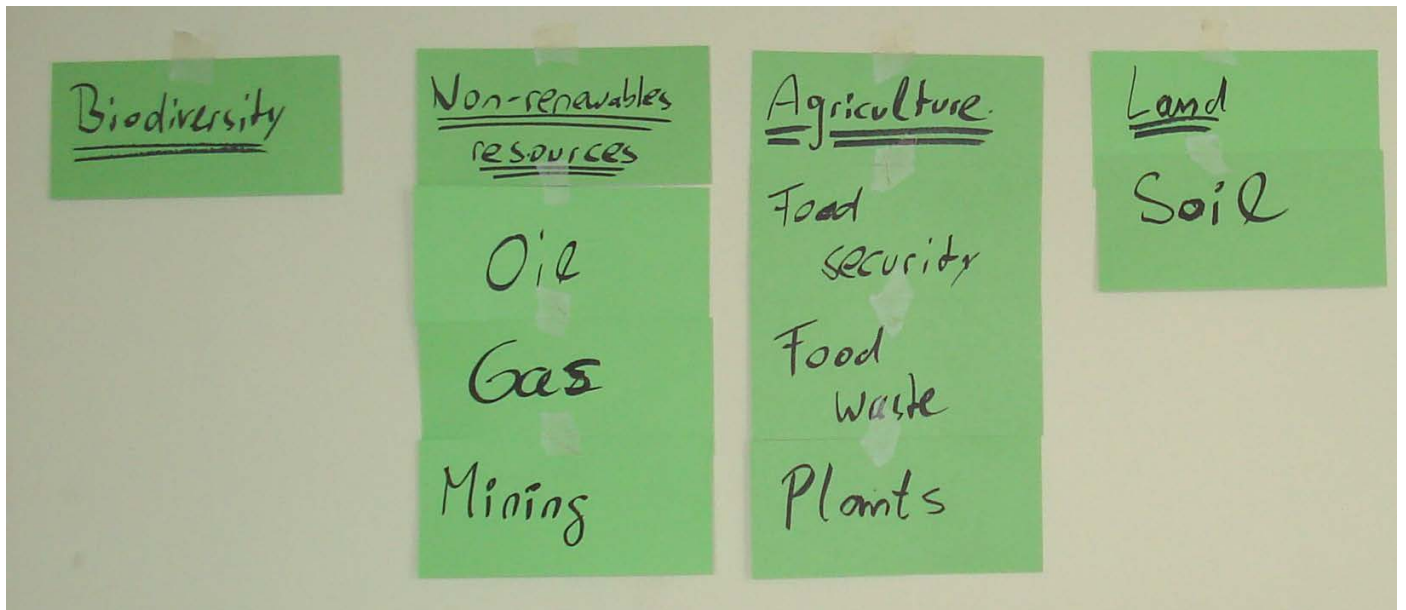 Biodiversity
Non-renewables
resources
Oil
Gas
Mining
Agriculture.
Food
security
Food
waste
Plants
Land
Soil